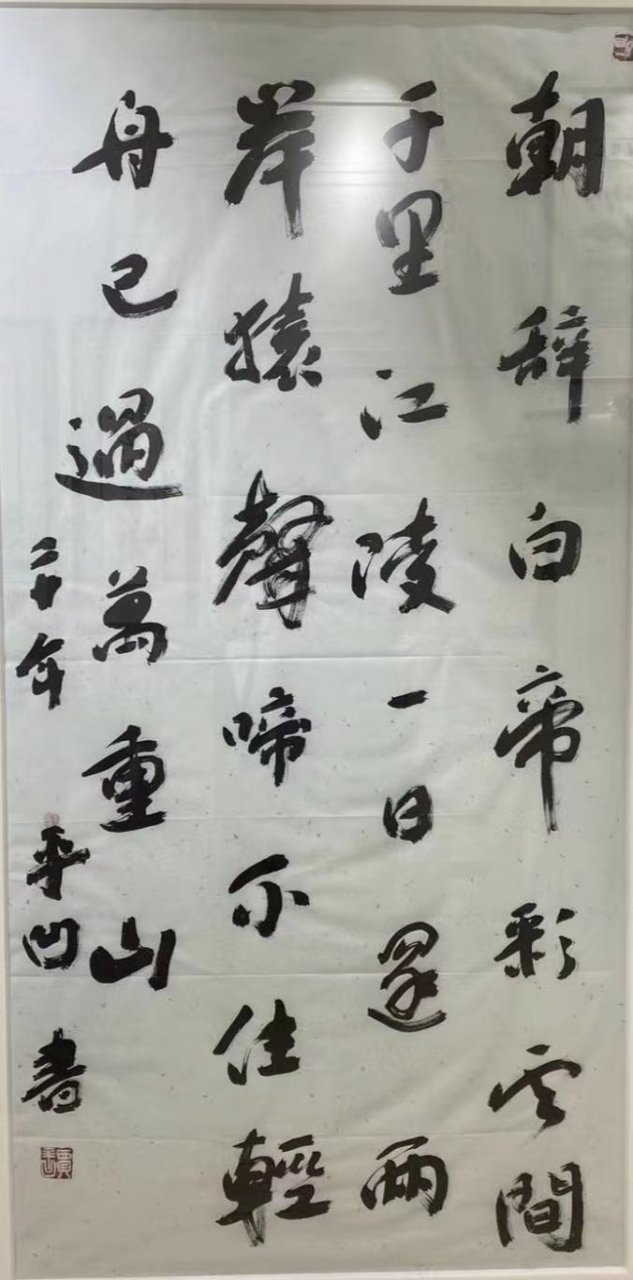 朝辞白帝彩云間
千里江陵一日還兩
岸猿聲啼不住輕
舟已過萬重山
二千年 平凹書